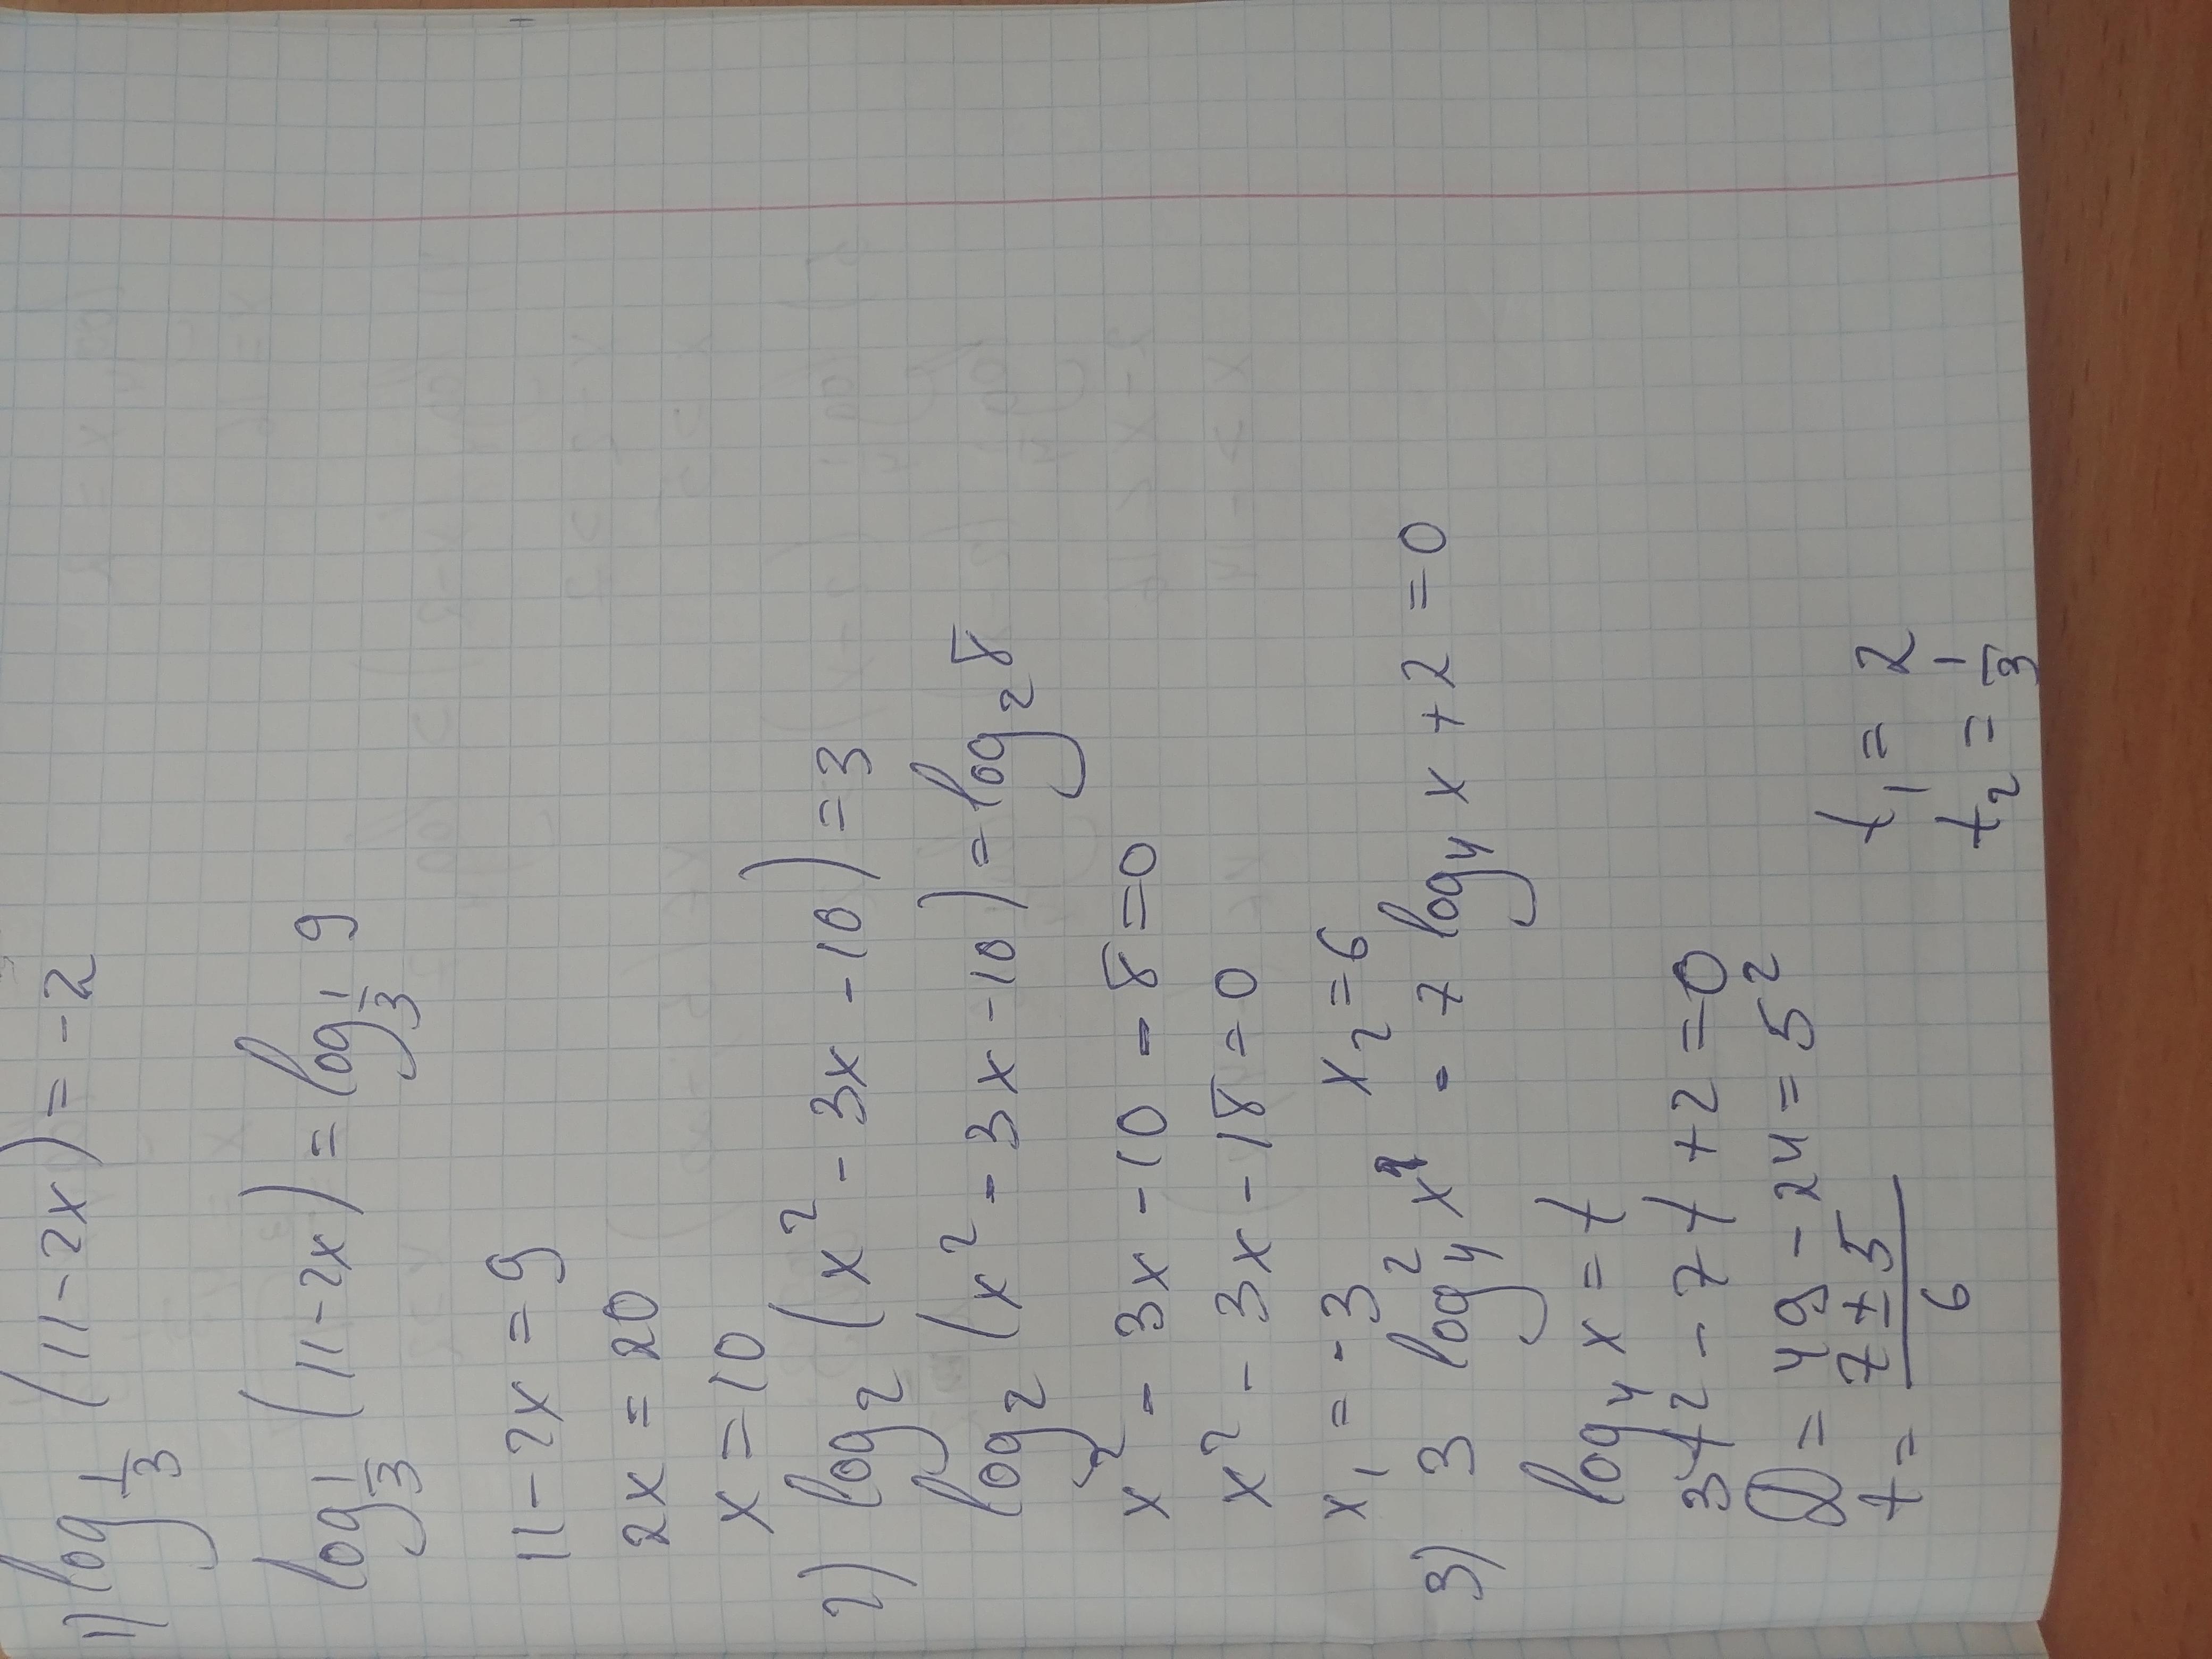 1) log 1/3 (11-2x) = -2
log 1/3 (11-2x) = log 1/3 9
11-2x = 9
2x = 20
x = 10
2) log₂ (x² - 3x - 10) = 3
log₂ (x² - 3x - 10) = log₂ 8
x² - 3x - 10 - 8 = 0
x² - 3x - 18 = 0
x₁ = -3 x₂ = 6
3) 3 log₄² x - 7 log₄ x + 2 = 0
log₄ x = t
3t² - 7t + 2 = 0
D = 49 - 24 = 5²
t = (7±5)/6 t₁ = 2
t₂ = 1/3